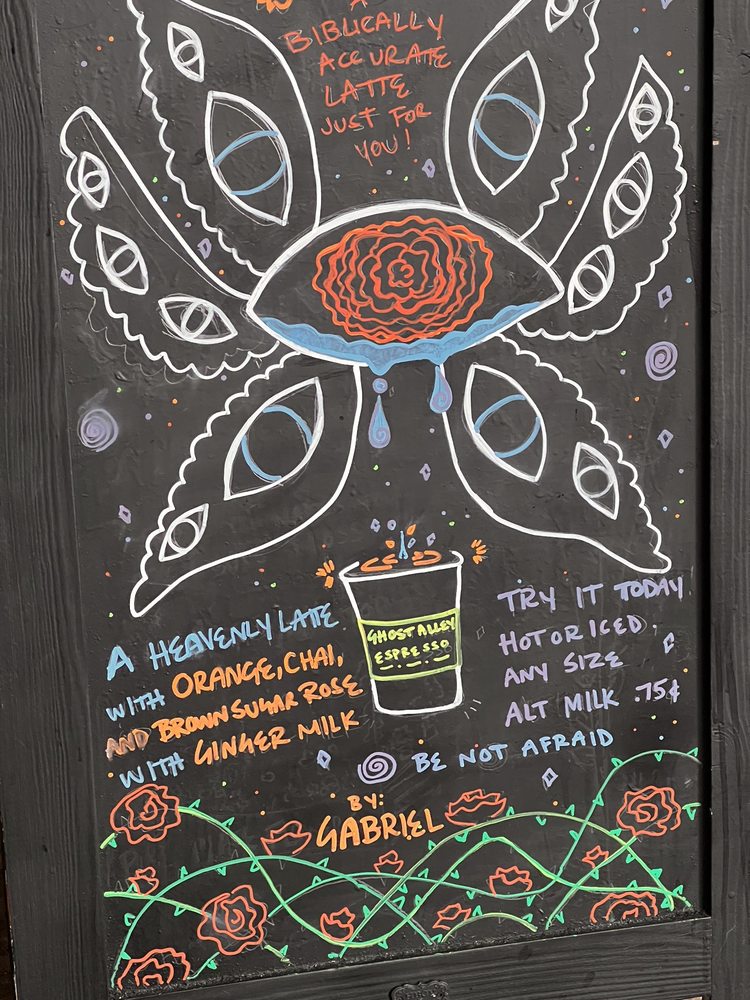 A
BIBLICALLY
ACCURATE
LATTE
JUST FOR
YOU!
GHOST ALLEY
ESPRESSO
A HEAVENLY LATTE
WITH ORANGE, CHAI,
AND BROWN SUGAR ROSE
WITH GINGER MILK
TRY IT TODAY
HOT OR ICED
ANY SIZE
ALT MILK .75¢
BE NOT AFRAID
BY:
GABRIEL